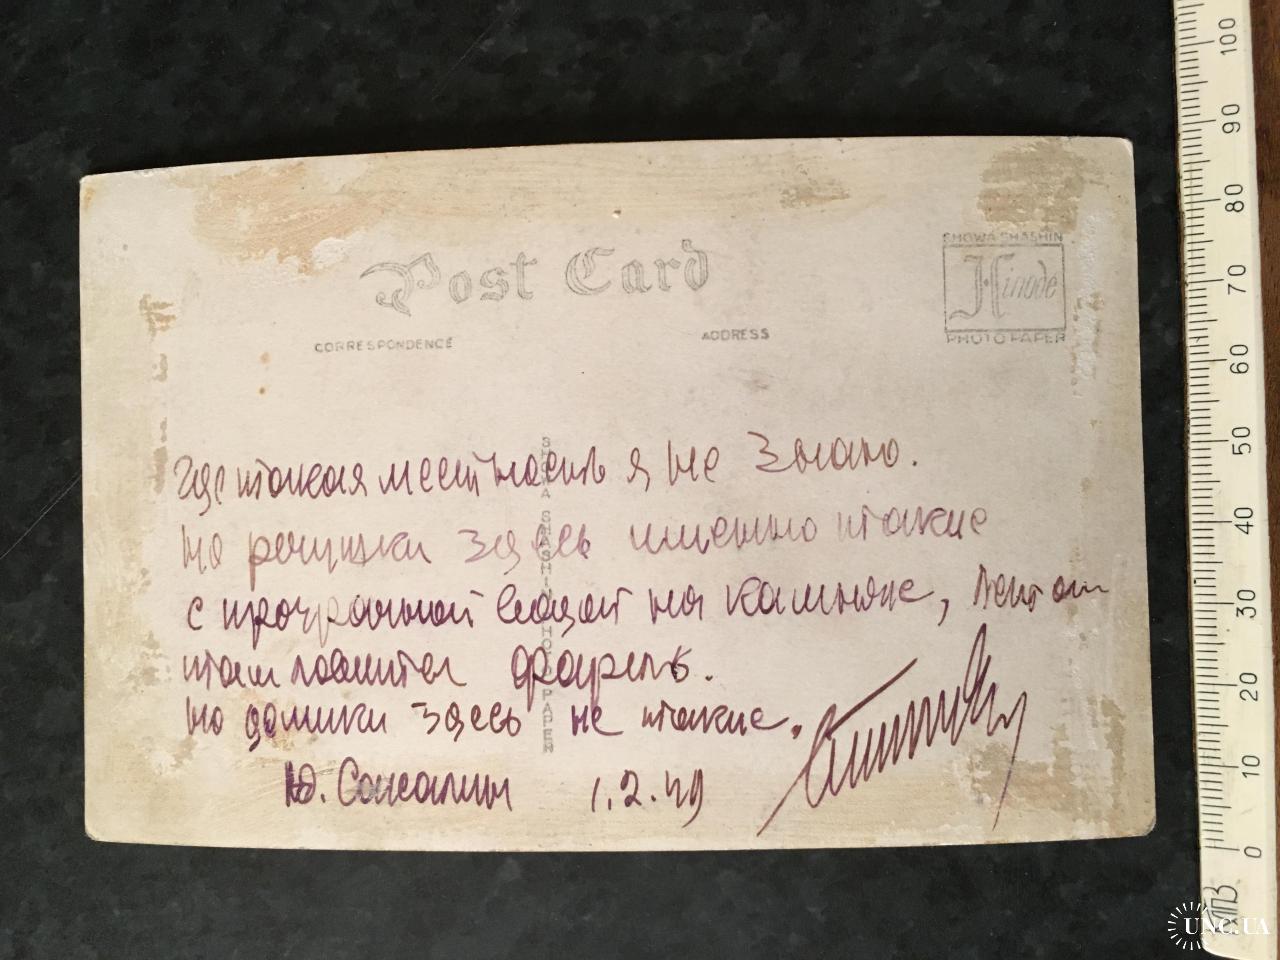 Post Card
CORRESPONDENCE
ADDRESS
SHOWA SHASHIN
Hinode
PHOTO PAPER
SHOWA SHASHIN PHOTO PAPER
Где такая местность я не знаю.
Но речушки здесь именно такие
с прозрачной водой на камнях, летом
там ловится форель.
Но домики здесь не такие.
Ю. Сахалин 1.2.49
100
90
80
70
60
50
40
30
20
10
0
UNC.UA